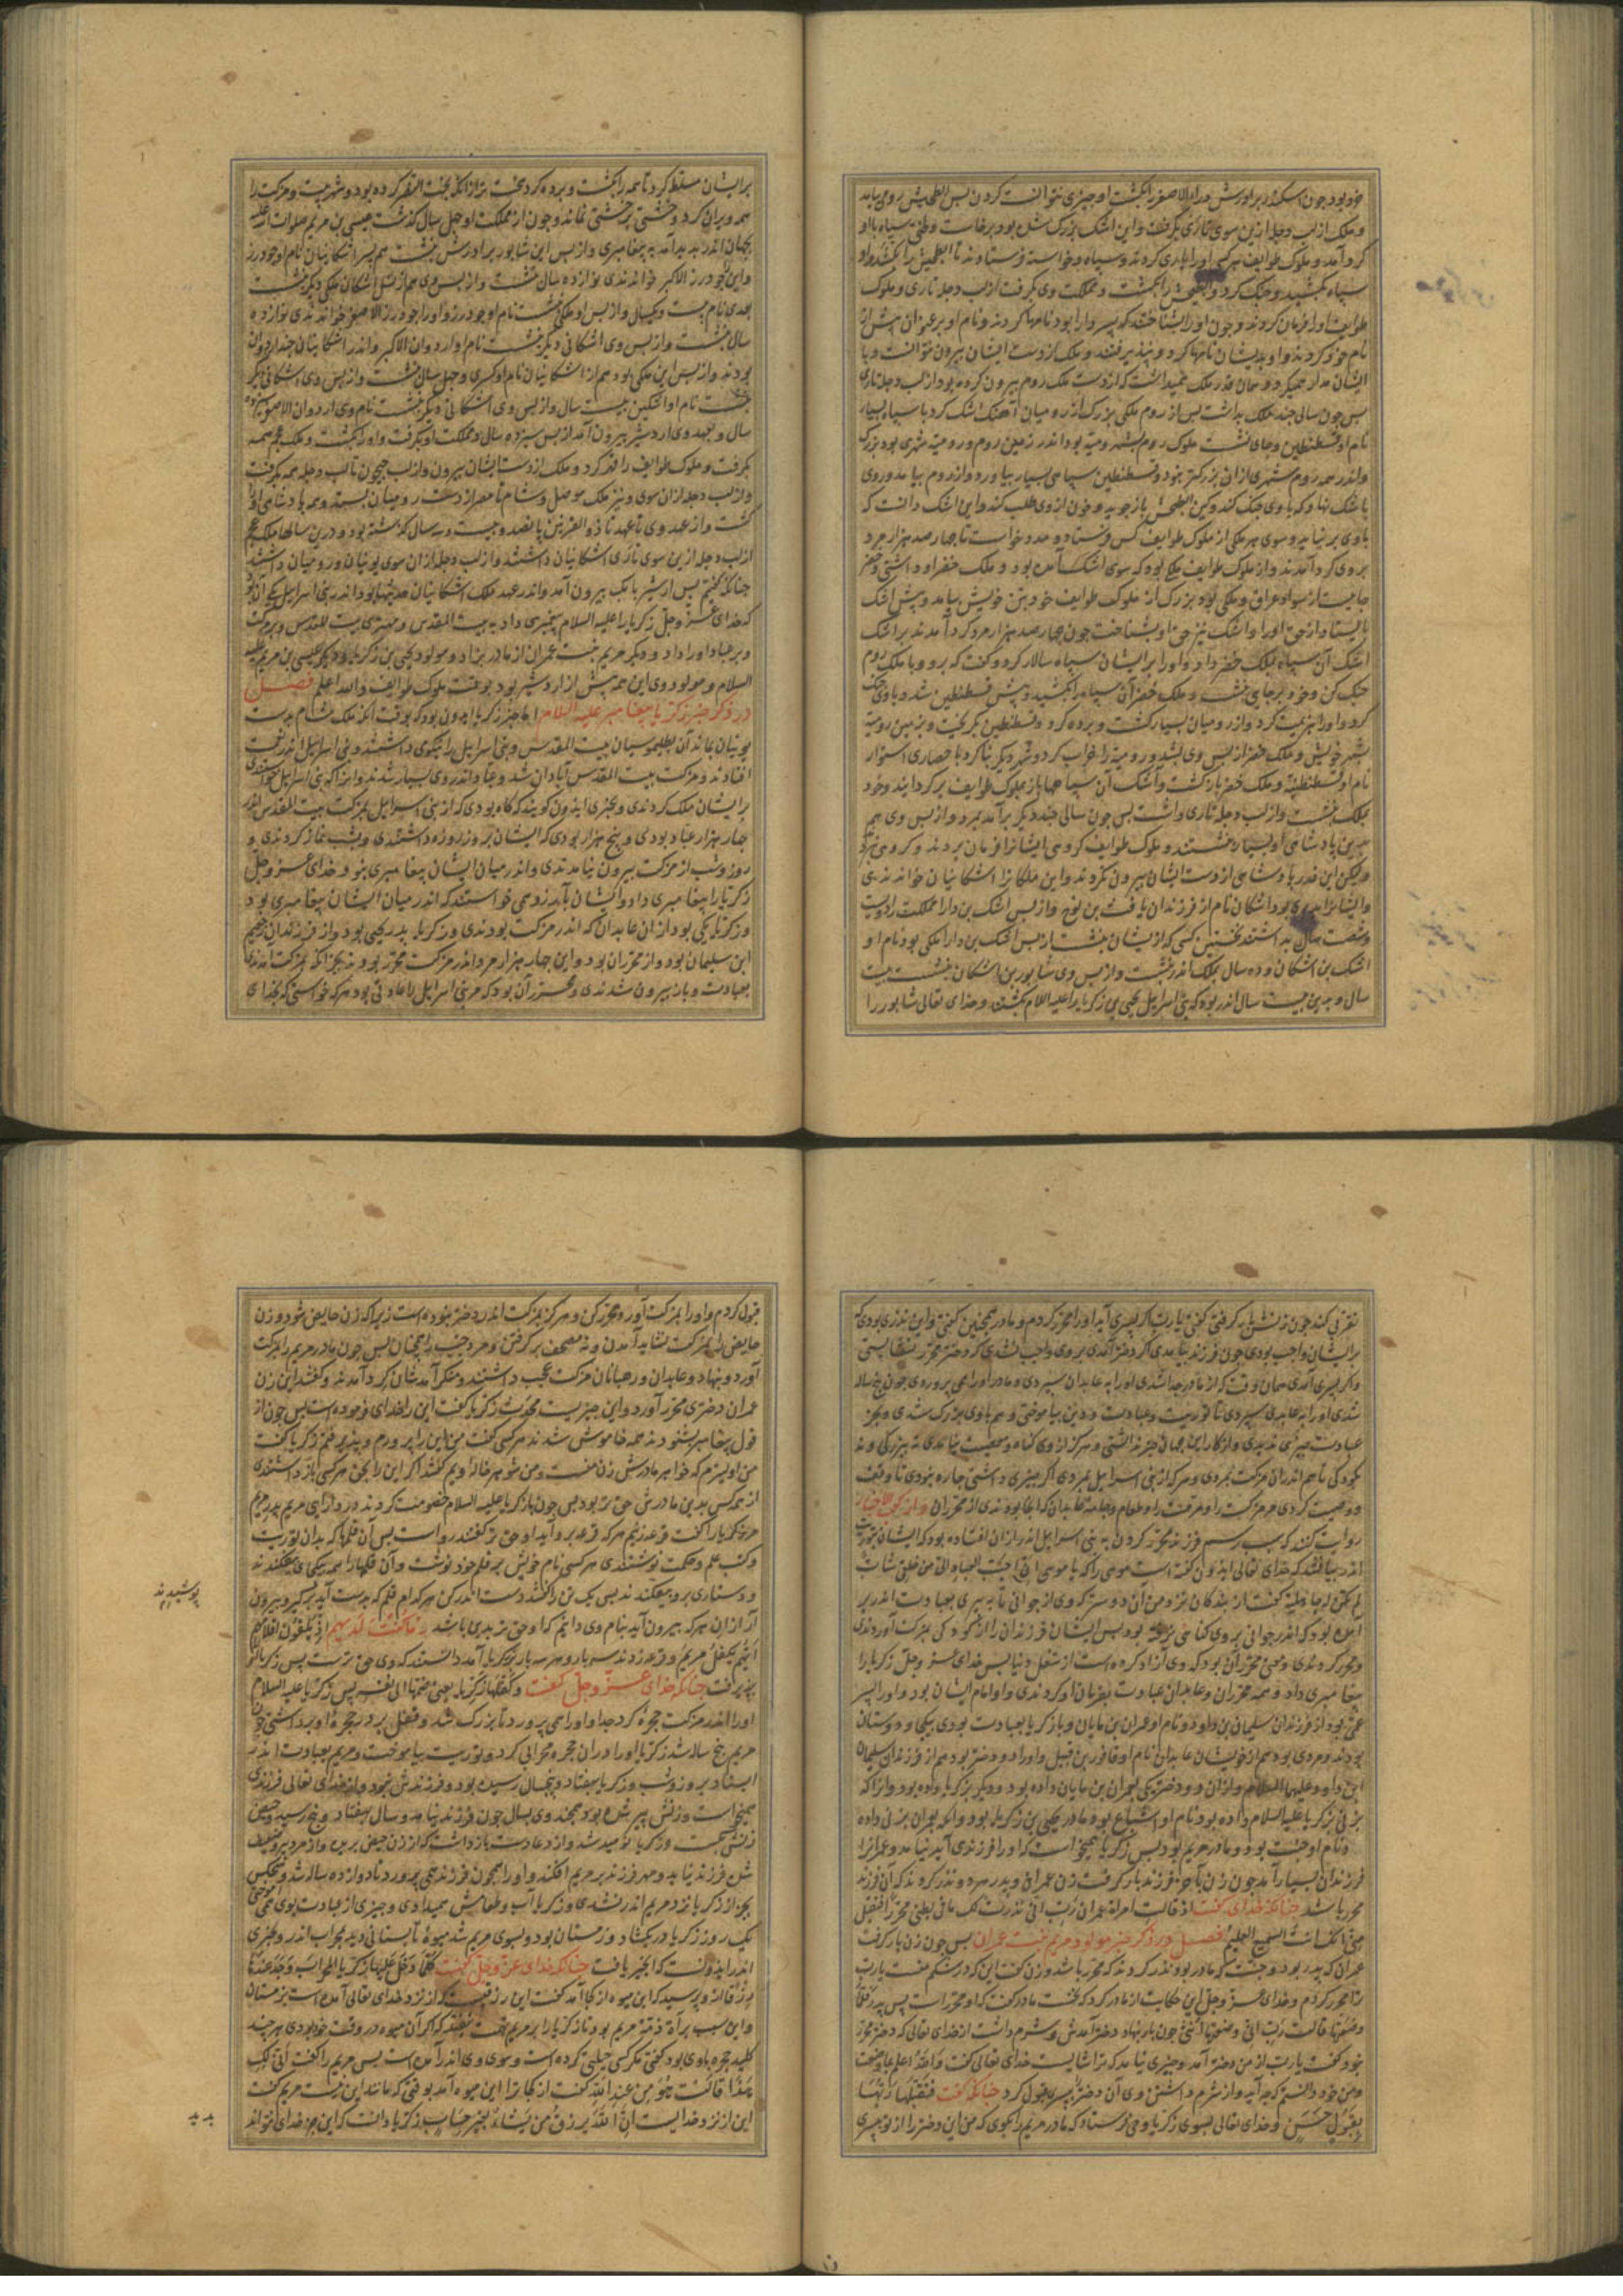 خود بود چون اسکندر برادرش دارا الاصغر را بکشت او چیزی نتوانست کردن پس الطحیش رومی بیامد
و ملک از لب دجله ازین سوی تازی بگرفت و این اشک بزرگ شده بود برخاست و سپاه با او
کرد آمد و ملوک طوایف هر کسی او را یاری کردند و سپاه و خواسته فرستادند تا
سپاه بکشید و جنک کرد و را بکشت و مملکت وی بکرفت از لب دجله تا ری و ملوک
طوایف او را فرمان کردند و چون او را بشناختند که پسر دارا بود نامها کردند و نام او بر عنوان پیش از
نام خود کردند و او بدیشان نامها کرد و بپذیرفتند و ملک از دست ایشان بیرون نتوانست و با
ایشان مدارا همیکرد و همان قدر ملک که از دست ملک روم بیرون کرده بود از لب دجله تا ری
پس چون سالی چند ملک بداشت پس از روم ملکی بزرک از رومیان آهنک اشک کرد با سپاه بسیار
نام او قسطنطین و جای نشست ملوک روم بشهر رومیه بود اندر زمین روم و رومیه شهری بود بزرک
و اندر همه روم شهری از ان بزرکتر نبود و قسطنطین سپاهی بسیار بیاورد و از روم بیامد و روی
باشک نهاد که با وی جنک کند و کین باز جوید و خون از وی طلب کند و این اشک دانست که
با وی بر نیاید و سوی هر ملکی از ملوک طوایف کس فرستاد و مدد خواست تا چهار صد هزار مرد
بر وی کرد آمدند و از ملوک طوایف ملکی بود که سوی اشک آمده بود و ملک حضر او داشتی و حضر
جاییست از سواد عراق و ملکی بود بزرک از ملوک طوایف خود بتن خویش بیامد و پیش اشک
بایستاد از حق او را و اشک نیز حق او بشناخت چون چهار صد هزار مرد کرد آمدند بر اشک
اشک آن سپاه بملک حضر داد و او را بر ایشان سپاه سالار کرد و کفت که برو و با ملک روم
جنک کن و خود بر جای بنشست و ملک حضر آن سپاه را بکشید و پیش قسطنطین شد و با وی جنک
کرد و او را هزیمت کرد و از رومیان بسیار بکشت و برده کرد و قسطنطین بکریخت و بزمین رومیه
بشهر خویش و ملک حضر از پس وی بشد و رومیه را خراب کرد و شهر دیکر بنا کرد با حصاری استوار
نام او قسطنطنیه و ملک حضر باز کشت و اشک آن سپاهها باز بملوک طوایف بر کردانید و خود
بملک بنشست و از لب دجله تا ری داشت پس چون سالی چند دیکر بر آمد بمرد و از پس وی هم
برین پادشاهی او بسیار بنشستند و ملوک طوایف کروهی ایشانرا فرمان بردند و کروهی نبردند
و لیکن این قدر پادشاهی از دست ایشان بیرون نکردند و این ملکانرا اشکانیان خواندندی
و ایشانرا پدری بود اشکان نام از فرزندان یافث بن نوح و از پس اشک بن دارا مملکت را دویست
و شصت سال بداشتند نخستین کسی که از ایشان بنشست از پس اشک بن دارا ملکی بود نام او
اشک بن اشکان و ده سال بملک اندر بنشست و از پس وی شاپور بن اشکان بنشست بیست
سال و بدین بیست سال اندر بود که بنی اسرائیل یحیی بن زکریا را علیه السلام بکشتند و خدای تعالی شاپور را
بر ایشان مسلط کرد تا همه را بکشت و برده کرد سخت تر از انکه بخت النصر کرده بود و شهر بیت و مزکت را
همه ویران کرد و خشتی بر خشتی نماند و چون از مملکت او چهل سال کذشت عیسی بن مریم صلوات الله علیه
بجهان اندر پدید آمد به پیغامبری و از پس این شاپور برادرش بنشست هم پسر اشکانیان نام او جودرز
و این جودرز الاکبر خواندندی نوازده سال بنشست و از پس وی هم از نسل اشکان ملکی دیکر بنشست
نام بیست و یکسال و از پس او ملکی بنشست نام او جودرز و او را جودرز الاصغر خواندندی نوازده
سال بنشست و از پس وی اشکانی دیکر بنشست نام او اردوان الاکبر و اندر اشکانیان چند اردوان
بودند و از پس این ملکی بود هم از اشکانیان نام او کسری و چهل سال بنشست و از پس وی اشکانی دیکر
بنشست نام او اشکین بیست سال و از پس وی اشکانی دیکر بنشست نام وی اردوان الاصغر سیزده
سال و بعهد وی اردشیر بیرون آمد از پس سیزده سال و مملکت او بکرفت و او را بکشت و ملک عجم همه
بکرفت و ملوک طوایف را قهر کرد و ملک از دست ایشان بیرون و از لب جیحون تا لب دجله همه بکرفت
و از لب دجله از ان سوی و نیز ملک موصل و شام تا مصر از دست رومیان بستد و همه پادشاهی او را
کشت و از عهد وی تا عهد تا ذو القرنین پانصد و بیست و سه سال کذشته بود و درین سالها ملک عجم
از لب دجله ازین سوی تا ری اشکانیان داشتند و از لب دجله از ان سوی یونیان و رومیان داشتند
چنانکه کفتیم پس اردشیر بابک بیرون آمد و اندر عهد ملک اشکانیان حدیثها بود اندر بنی اسرائیل یکی آن بود
که خدای عز و جل زکریا را علیه السلام پیغمبری داد به بیت المقدس و مهتری بیت المقدس و مزکت
و بر عباد او را داد و دیکر مریم بنت عمران از مادر بزاد و مولود یحیی بن زکریا و دیکر عیسی بن مریم علیه
السلام و مولود وی این همه پیش از اردشیر بود بوقت ملوک طوایف و الله اعلم فصل
در ذکر خبر زکریا پیغامبر علیه السلام اما خبر زکریا ایدون بود که بوقت انکه ملک شام بدست
یونیان بماند آن بطلمیوسیان بیت المقدس و بنی اسرائیل را نیکوی داشتند و بنی اسرائیل اندر نعمت
افتادند و مزکت بیت المقدس آبادان شد و عباد اندر وی بسیار شدند و انرا که بنی اسرائیل
بر ایشان ملک کردندی و بخبری ایدون کویند که کاه بودی که از بنی اسرائیل بمزکت بیت المقدس اندر
چهار هزار عباد بودی و پنج هزار بودی که ایشان بروز روزه داشتندی و بشب نماز کردندی و
روز و شب از مزکت بیرون نیامدندی و اندر میان ایشان پیغامبری نبود خدای عز و جل
زکریا را پیغامبری داد و ایشان بآرزو همی خواستند که اندر میان ایشان پیغامبری بود
و زکریا یکی بود از ان عابدان که اندر مزکت بودندی و زکریا پدر یحیی بود و از فرزندان
ابن سلیمان بود و از محرران بود و این چهار هزار مرد اندر مزکت محرر بودند بجز انکه بمزکت آمدندی
بعبادت و باز بیرون شدندی و محرر آن بود که مر بنی اسرائیل را عادتی بود هر که خواستی که بخدای
تقرب کند چون زنش بار کرفتی کفتی یا رب اکر پسری آید او را محرر کردم و مادر همچنین کفتی و این نذری بودی که
بر ایشان واجب بودی چون فرزند بیامدی اکر دختر آمدی بر وی واجب نشدی که دختر محرر نشایستی
و اکر پسری آمدی همان وقت که از مادر جدا شدی او را به عابدان سپردی و مادر او را همی پروردی چون پنج ساله
شدی او را به عابدی سپردی تا توریت و عبادت و دین بیاموختی و هم با وی بزرک شدی و بجز
عبادت چیزی ندیدی و از کار این جهان خبر نداشتی و هرکز از وی کناه و معصیت نیامدی نه ببزرکی و نه
بکودکی تا هم اندر ان مزکت بمردی و هر که از بنی اسرائیل بمردی اکر چیزی داشتی چاره نبودی تا وقف
و وصیت کردی مر مزکت را و مرقفت را و طعام و جامهٔ عابدان که آنجا بودندی از محرران و از کعب الاحبار
روایت کنند که سبب رسم فرزند محرر کردن به بنی اسرائیل اندر از ان افتاده بود که ایشان بتوریت
اندر بیافتند که خدای تعالی ایدون کفته است موسی را که یا موسی ان احب العباد الی من خلقی شاب
کفت از بندکان نزد من آن دوستر که وی از جوانی تا به پیری بعبادت اندر بر
آمده بود که اندر جوانی بر وی کناهی نرفته بود پس ایشان فرزندان را از کودکی بمزکت آوردندی
و محرر کردندی و معنی محرر آن بود که وی آزاد کرده است از شغل دنیا پس خدای عز و جل زکریا را
پیغامبری داد و همه محرران و عابدان عبادت بفرمان او کردندی و او امام ایشان بود و او را پسر
عمی بود از فرزندان سلیمان بن داود و نام او عمران بن ماثان و با زکریا بعبادت بودی بیکی و دوستان
بودند و مردی بود هم از خویشان عابدان نام او فاقور بن قبیل و او را دو دختر بود هم از فرزندان سلیمان
ابن داود علیهما السلام و از ان دو دختر یکی بعمران بن ماثان داده بود و دیکر بزکریا داده بود و انرا که
بزنی بزکریا علیه السلام داده بود نام او اشیاع بود مادر یحیی بن زکریا بود و انکه بعمران بزنی داده
و نام او حنت بود و مادر مریم بود پس زکریا همیخواست که او را فرزندی آید نیامد و عمرانرا
فرزندان بسیار آمد چون زن باخر فرزند بار کرفت زن عمران و پدر هر دو نذر کردند که آن فرزند
محرر باشد چنانکه خدای کفت اذ قالت امراة عمران رب انی نذرت لک ما فی بطنی محررا فتقبل
منی انک انت السمیع العلیم فصل در ذکر خبر مولود مریم بنت عمران پس چون زن بار کرفت
عمران که پدر بود و حنت که مادر بود نذر کردند که محرر باشد و زن کفت این که در شکم منست یا رب
ترا محرر کردم و خدای عز و جل این حکایت از مادر کرد که نخست مادر کفت که او محرر است پس پدر فلما
وضعتها قالت رب انی وضعتها انثی چون بار بنهاد دختر آمدش و شرم داشت از خدای تعالی که دختر محرر
نبود کفت یا رب از من دختر آمد و چیزی نیامد که ترا شایست خدای تعالی کفت والله اعلم بما وضعت
و من خود دانستم که چه آید و از شرم داشتن وی آن دختر را بپسر قبول کرد چنانکه کفت فتقبلها ربها
بقبول حسن و خدای تعالی بسوی زکریا وحی فرستاد که مادر مریم را بکوی که من این دختر را از تو بپسری
قبول کردم و او را بمزکت آور و محرر کن و هرکز بمزکت اندر دختر نبوده است زیراکه زن حایض شود و زن
حایض را بمزکت نشاید آمدن و نه مصحف بر کرفتن و مرد جنب را همچنان پس چون مادر مریم را بمزکت
آورد و بنهاد و عابدان و رهبانان مزکت عجب داشتند و منکر آمدشان کرد آمدند و کفتند این زن
عمران دختری محرر آورد و این چیزیست محدث زکریا کفت این را خدای فرموده است پس چون از
قول پیغامبر بشنودند همه خاموش شدند هر کسی کفت من این را پرورم و پذیرفتم زکریا کفت
من اولیترم که خواهر مادرش زن منست و من شوهر خالهٔ ویم کفتند اکر این را بحق هر کسی باز داشتندی
از همه کس بدین مادرش حق تر بود پس چون با زکریا علیه السلام خصومت کردند در دارایی مریم پدر مریم
مر زکریا را کفت قرعه زنیم هر که قرعه بر و آید او حق تر کفتند رواست پس آن قلمها که بدان توریت
و کتب علم و حکمت نوشتندی هر کسی نام خویش بر قلم خود نوشت و آن قلمها را همه بیکجای بیفکندند
و دستاری برو بیفکندند پس یک تن را کفتند دست اندر کن هر کدام قلم که بدست آید بر کیر و بیرون
آر از ان هر که بیرون آید بنام وی دانیم که او حق تر بدی باشد و ما کنت لدیهم اذ یلقون اقلامهم
ایهم یکفل مریم و قرعه زدند سه بار و هر سه بار بزکریا آمد دانستند که وی حق ترست پس زکریا او را
بپذیرفت چنانکه خدای عز و جل کفت وکفلها زکریا یعنی ضمها الی نفسه پس زکریا علیه السلام
او را اندر مزکت حجرهٔ کرد جدا و او را همی پرورد تا بزرک شد و قفل بر در حجرهٔ او بر داشتی چون
مریم پنج ساله شد زکریا او را در ان حجره محرابی کرد و توریت بیاموخت و مریم بعبادت اندر
ایستاد بروز و شب و زکریا بهفتاد و پنجسال رسیده بود و فرزندش نبود و از خدای تعالی فرزندی
همیخواست و زنش پیر شده بود همچند وی بسال چون فرزند نیامد و سال بهفتاد و پنج رسید و حیض
زنش بنشست و زکریا نومید شد و از دعا دست باز داشت که از زن حیض بریده و از مرد پیر و ضعیف
شده فرزند نیاید و مهر فرزند بر مریم افکند و او را همچون فرزند همی پرورد تا دوازده ساله شد و هیچکس
بجز از زکریا نزد مریم اندر نشدی و زکریا آب و طعامش میدادی و چیزی از عبادت بوی همی آموختی
یک روز زکریا در بکشاد و زمستان بود و بسوی مریم شد میوهٔ تابستانی دید بمحراب اندر و بخبری
اندر ایدونست که انجیر یافت چنانکه خدای عز و جل کفت کلما دخل علیها زکریا المحراب وجد عندها
رزقا الآیة و پرسید که این میوه از کجا آمد کفت این رزقیست که از نزد خدای تعالی آمده است بزمستان
و این سبب برآة ذمهٔ مریم بود تا زکریا را بر مریم تهمت نیفتد که اکر آن میوه در وقت خود بودی هر چند
کلید حجره با وی بود کفتی مکر کسی حیلتی کرده است و سوی وی اندر آمده است پس مریم را کفت انی لک
هذا قالت هو من عند الله کفت از کجا ترا این میوه آمد بوقتی که مانند این نیست مریم کفت
این از نزد خداست ان الله یرزق من یشاء بغیر حساب زکریا دانست که این جز خدای نتواند
پوشیدند
پدید